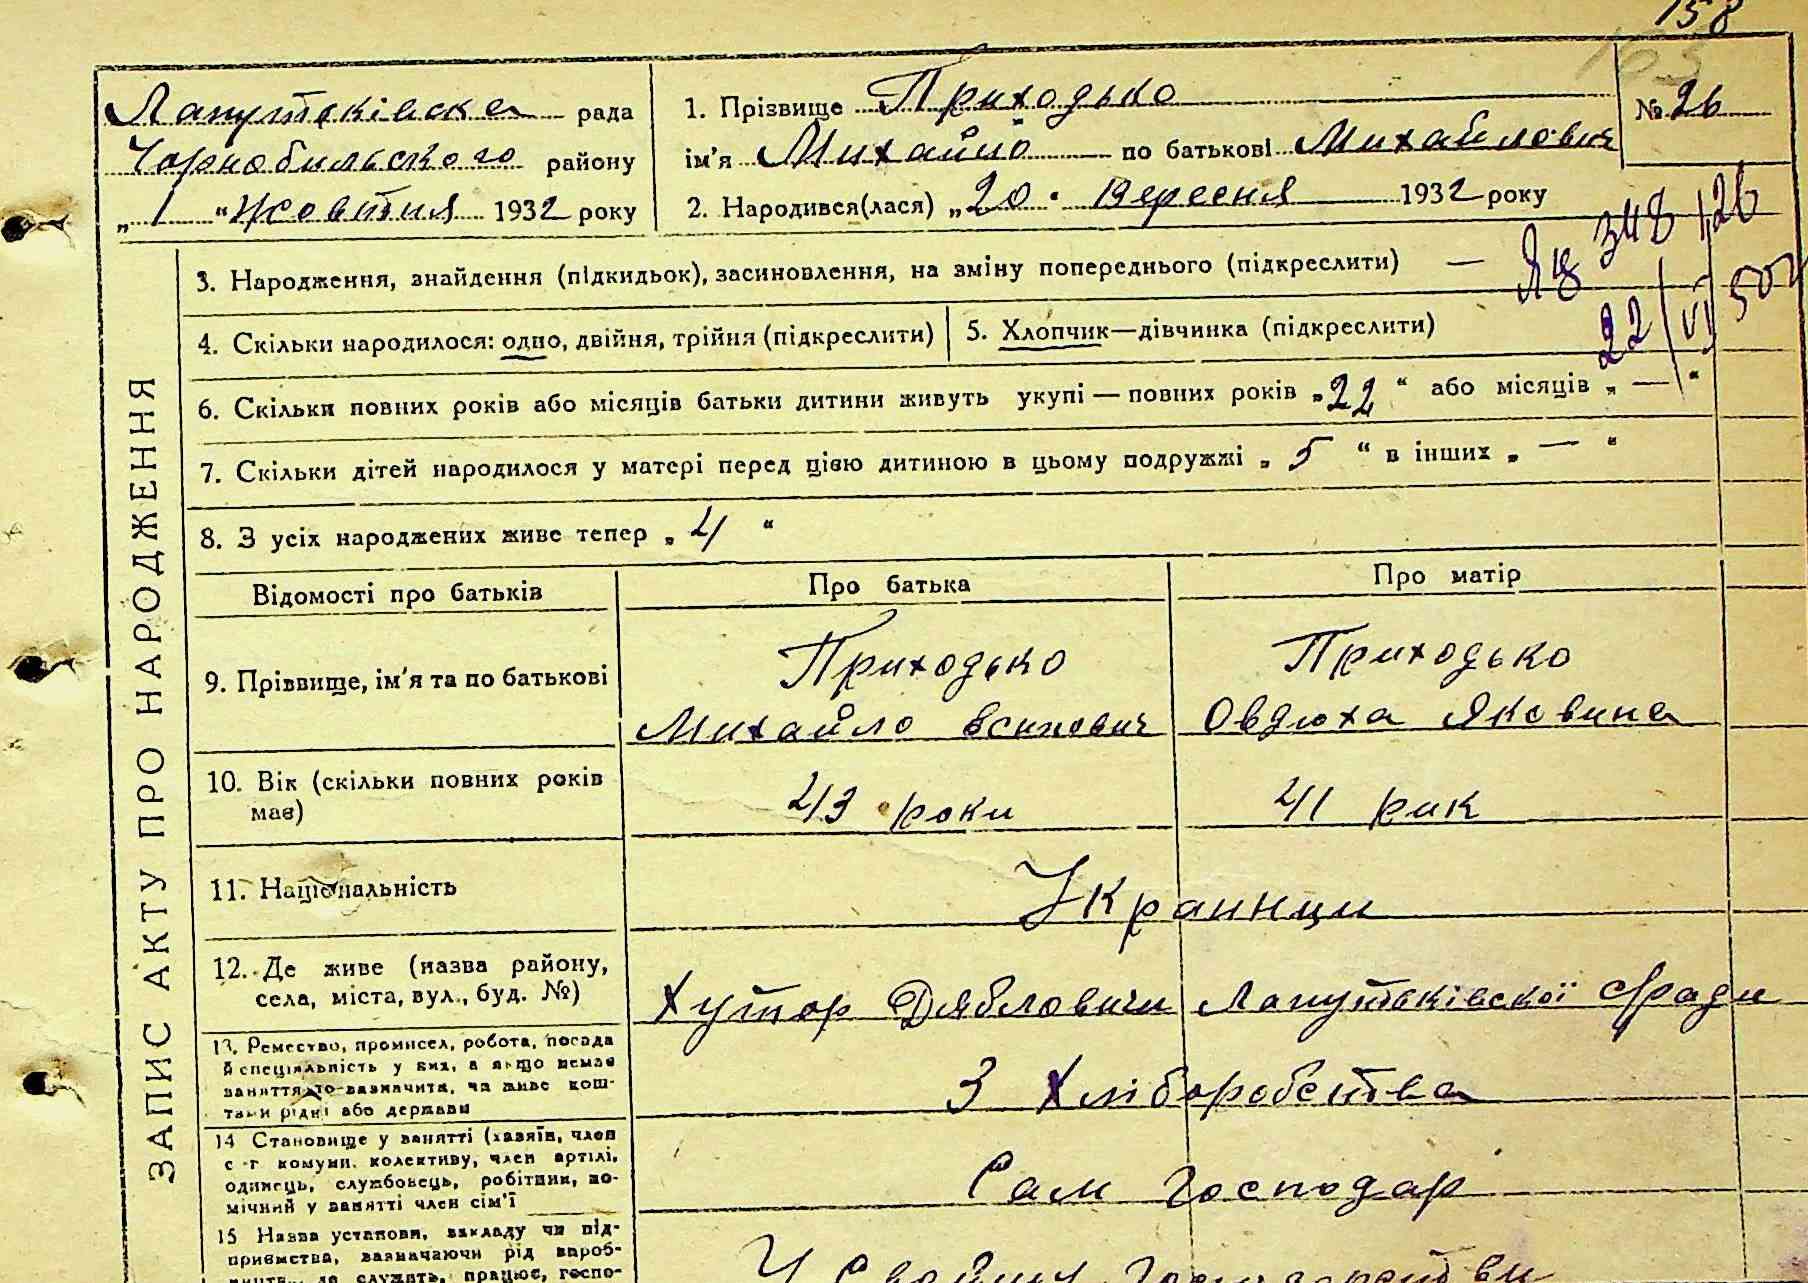 158
Лапутьківська рада
Чорнобильского району
„1“ Жовтня 1932 року
1. Прізвище Приходько
ім'я Михайло по батькові Михайлович
№ 26
2. Народився(лася) „20. Вересня 1932 року
3. Народження, знайдення (підкидьок), засиновлення, на зміну попереднього (підкреслити) —
22/VI 50
4. Скільки народилося: одно, двійня, трійня (підкреслити)
5. Хлопчик—дівчинка (підкреслити)
6. Скільки повних років або місяців батьки дитини живуть укупі — повних років „22“ або місяців „—“
7. Скільки дітей народилося у матері перед цією дитиною в цьому подружжі „5“ в інших „—“
8. З усіх народжених живе тепер „4“
Відомості про батьків Про батька Про матір
9. Прізвище, ім'я та по батькові
Приходько
Михайло Всипович
Приходько
Овдюха Яковина
10. Вік (скільки повних років
має)
43 роки
41 рик
11. Національність
Украинци
12. Де живе (назва району,
села, міста, вул., буд. №)
Хутор Дябловичи Лапутьківскої с/ради
13. Ремество, промисел, робота, посада
й спеціяльність у них, а якщо немає
заняття, то зазначити, чи живе кош-
тами рідні або держави
З Хліборобства
14 Становище у занятті (хазяїн, член
с.-г комуни, колективу, член артілі,
одинець, службовець, робітник, по-
мічний у занятті член сім'ї
Сам господар
15 Назва установи, закладу чи під-
приємства, зазначаючи рід вироб-
ництва, де служать, працює, госпо-
У Свойму Господарстви
ЗАПИС АКТУ ПРО НАРОДЖЕННЯ